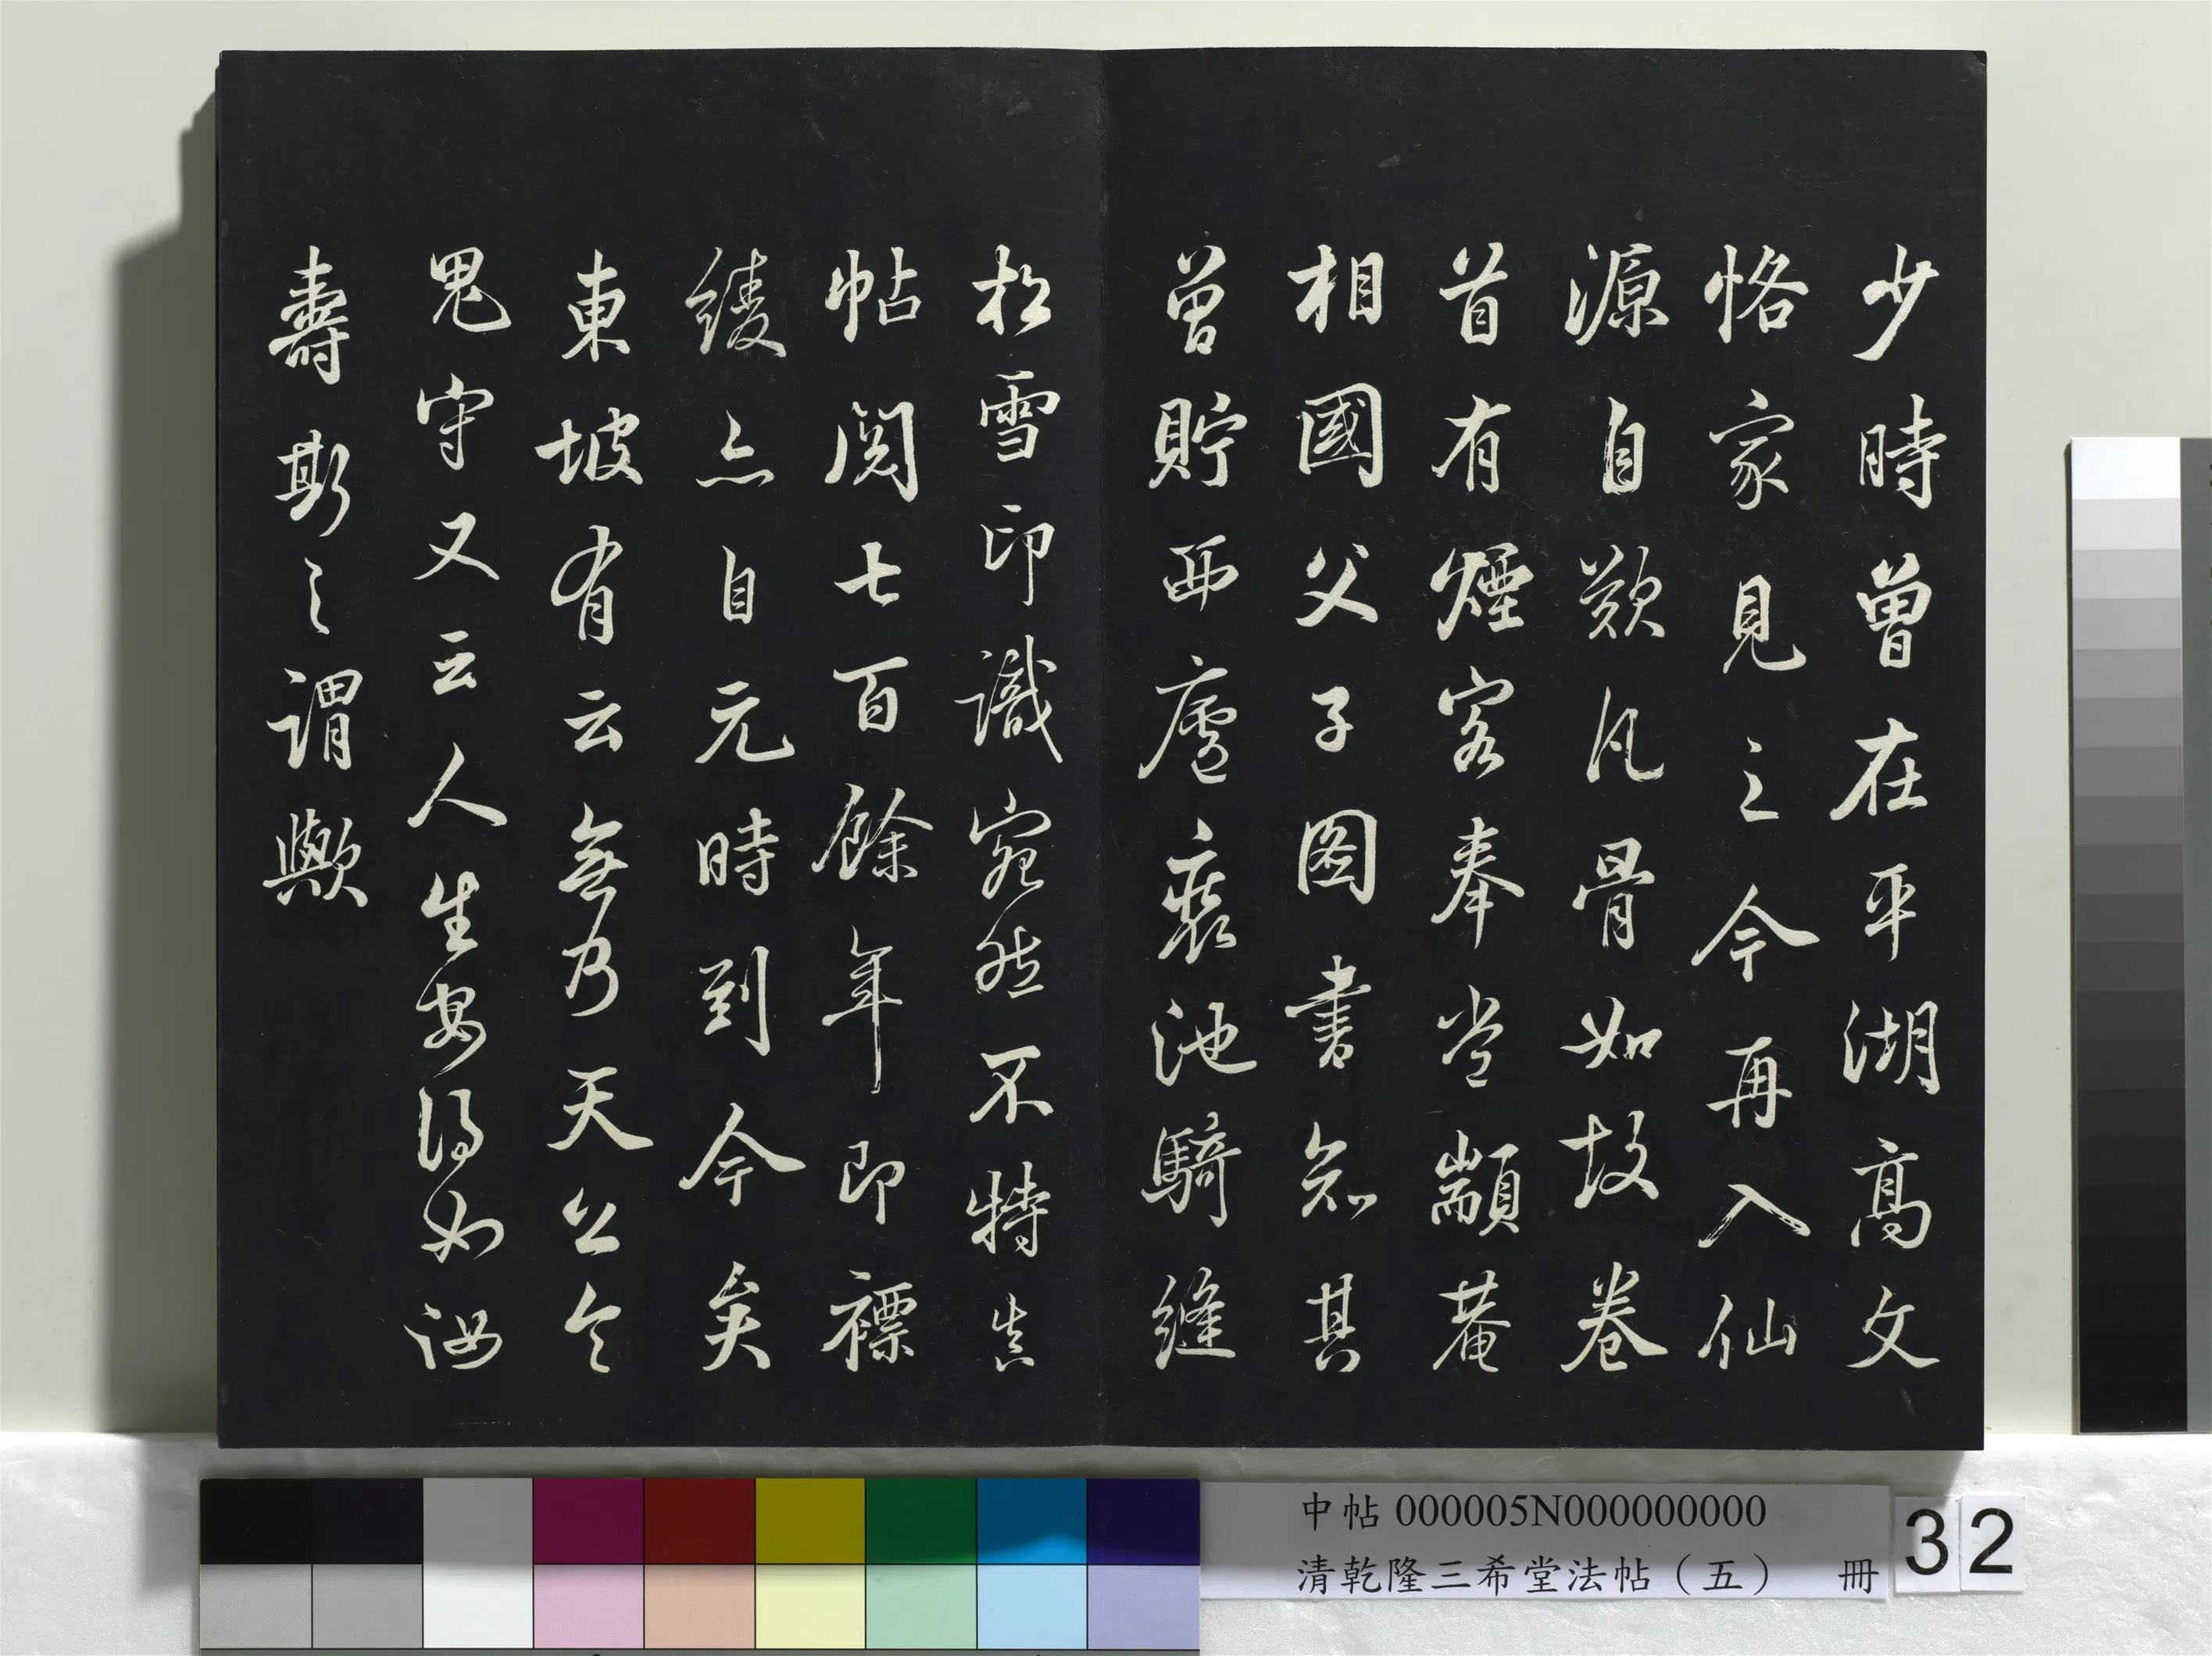 少時曾在平湖高文
恪家見之今再入仙
源自歎凡骨如故卷
首有煙客奉嘗顓菴
相國父子图書知其
曾貯西廬裝池騎縫
松雪印識宛然不特真
帖閱七百餘年即褾
綾亦自元時到今矣
東坡有云無乃天公令
鬼守又云人生安得如汝
壽斯之謂歟
中帖 000005N000000000
清乾隆三希堂法帖（五） 冊
32